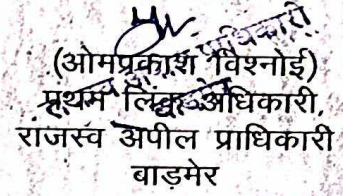 (ओमप्रकाश विश्नोई)
प्रथम लिंक अधिकारी,
राजस्व अपील प्राधिकारी
बाड़मेर